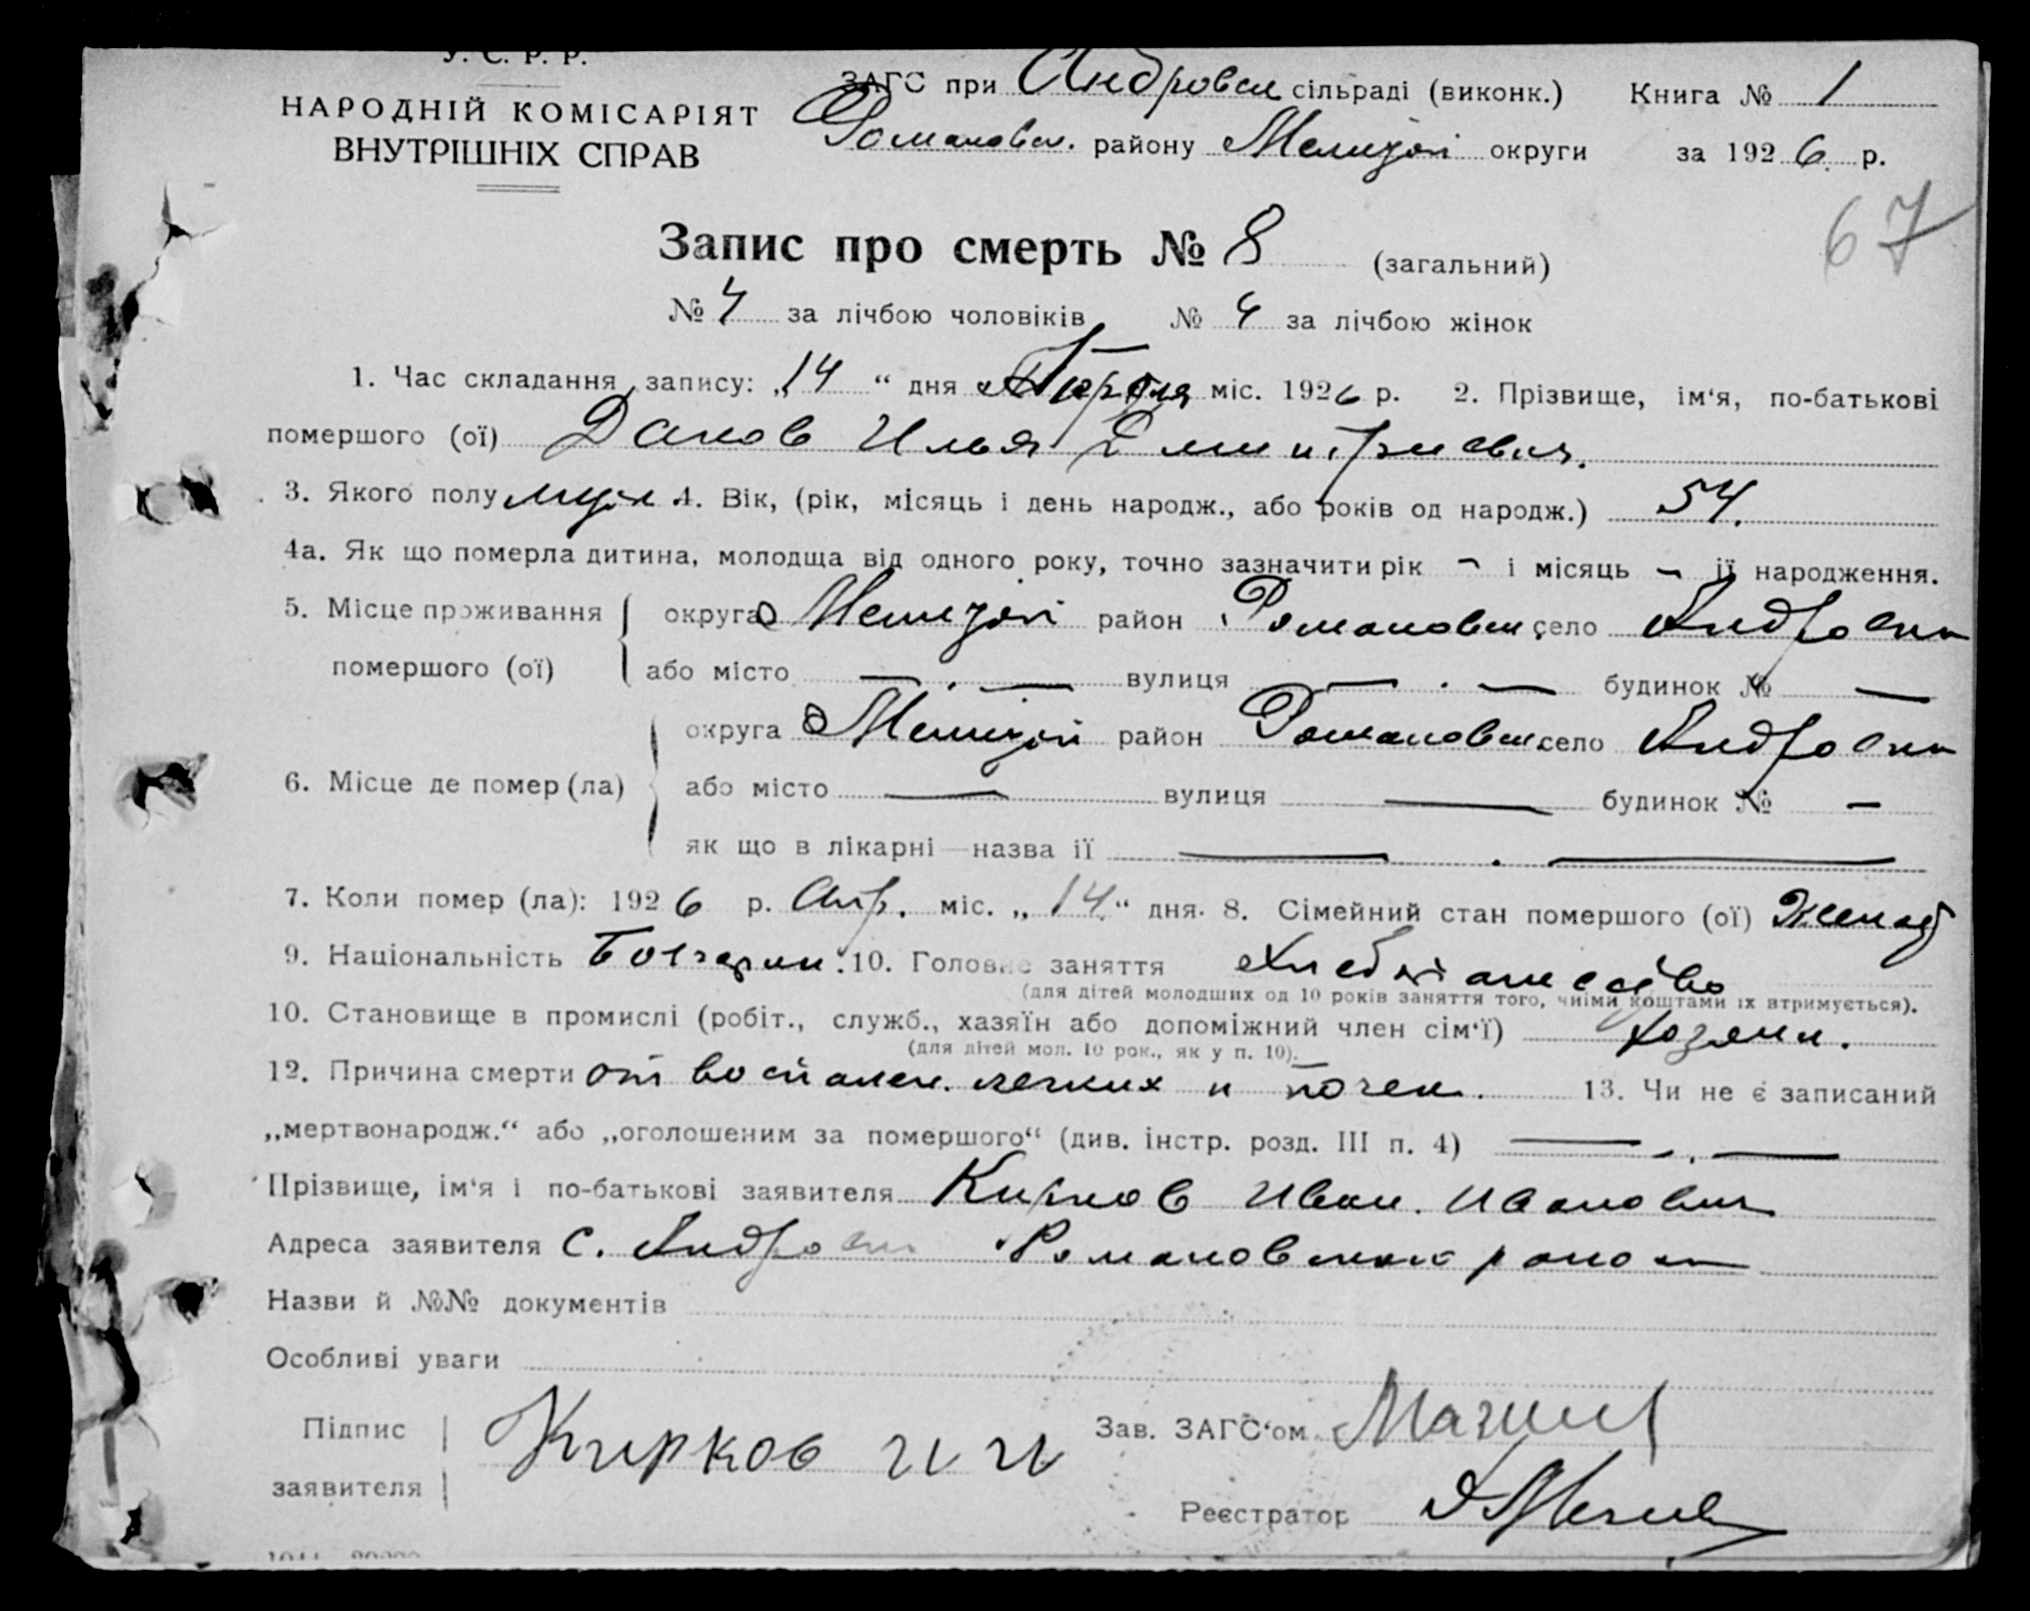 У. С. Р. Р.
НАРОДНІЙ КОМІСАРІЯТ
ВНУТРІШНІХ СПРАВ
ЗАГС при Андровск сільраді (виконк.) Книга № 1
Романовск. району Мелитоп округи за 1926 р.
67
Запис про смерть № 8 (загальний)
№ 4 за лічбою чоловіків № 4 за лічбою жінок
1. Час складання запису: „14“ дня Апреля міс. 1926 р. 2. Прізвище, ім‘я, по-батькові
помершого (ої) Данов Илья Дмитриевич.
3. Якого полу муж 4. Вік, (рік, місяць і день народж., або років од народж.) 54.
4а. Як що померла дитина, молодща від одного року, точно зазначити рік — і місяць — її народження.
5. Місце проживання округа Мелитоп район Романовск село Андровка
помершого (ої) або місто — . — вулиця — . — будинок № —
округа Мелитоп район Романовск село Андровка
6. Місце де помер (ла) або місто — вулиця — будинок № —
як що в лікарні—назва ії — . —
7. Коли помер (ла): 1926 р. Апр. міс. „14“ дня. 8. Сімейний стан помершого (ої) Женат
9. Національність Болгарин. 10. Головне заняття Хлебопашество
(для дітей молодших од 10 років заняття того, чиїми коштами їх втримується).
10. Становище в промислі (робіт., служб., хазяїн або допоміжний член сім‘ї) Хозяин.
(для дітей мол. 10 рок., як у п. 10).
12. Причина смерти от воспален. легких и почек. 13. Чи не є записаний
„мертвонародж.“ або „оголошеним за помершого“ (див. інстр. розд. III п. 4) — . —
Прізвище, ім‘я і по-батькові заявителя Кирков Иван. Иванович
Адреса заявителя С. Андровк Романовского района
Назви й №№ документів
Особливі уваги
Підпис Кирков И И Зав. ЗАГС‘ом
заявителя
Реєстратор